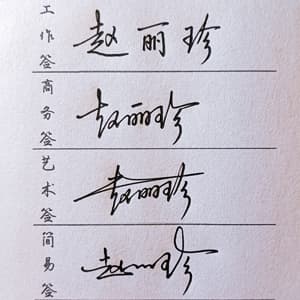 工作签 赵丽珍
商务签 赵丽珍
艺术签 赵丽珍
简易签 赵丽珍